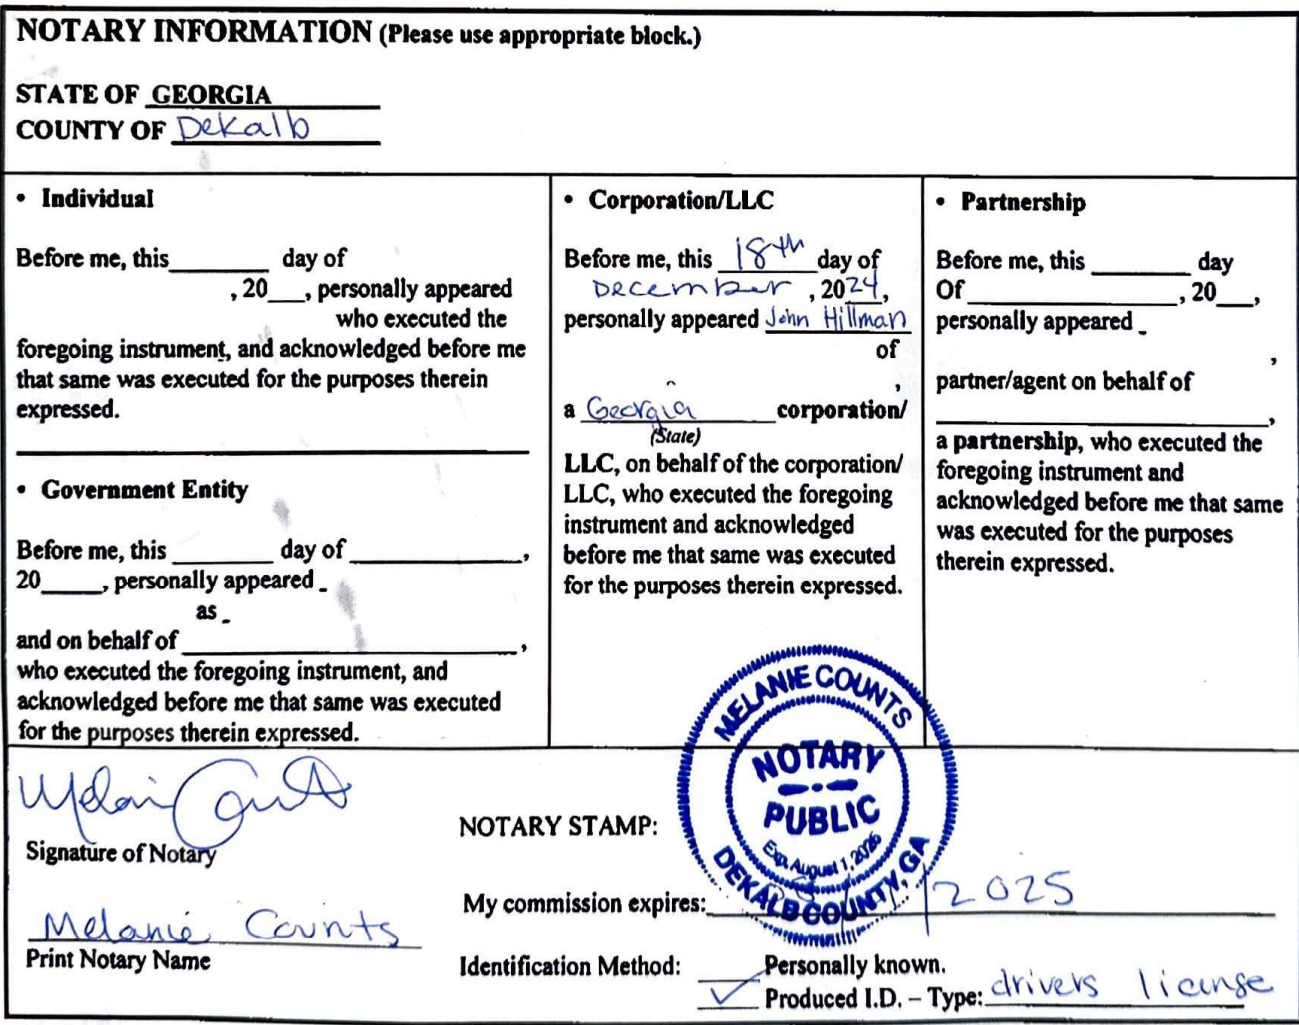 NOTARY INFORMATION (Please use appropriate block.)
STATE OF GEORGIA
COUNTY OF Dekalb
• Individual
Before me, this________ day of
, 20___, personally appeared
who executed the
foregoing instrument, and acknowledged before me
that same was executed for the purposes therein
expressed.
• Government Entity
Before me, this ________ day of ______________,
20_____, personally appeared _
as _
and on behalf of ___________________________,
who executed the foregoing instrument, and
acknowledged before me that same was executed
for the purposes therein expressed.
• Corporation/LLC
Before me, this 18th day of
December, 2024,
personally appeared John Hillman
of
,
a Georgia corporation/
(State)
LLC, on behalf of the corporation/
LLC, who executed the foregoing
instrument and acknowledged
before me that same was executed
for the purposes therein expressed.
• Partnership
Before me, this ________ day
Of _________________, 20___,
personally appeared _
,
partner/agent on behalf of
___________________________,
a partnership, who executed the
foregoing instrument and
acknowledged before me that same
was executed for the purposes
therein expressed.
Signature of Notary
Melanie Counts
Print Notary Name
NOTARY STAMP:
MELANIE COUNTS
NOTARY
PUBLIC
Exp. August 1, 2025
DEKALB COUNTY, GA
My commission expires: 2025
Identification Method: ____Personally known.
✓ Produced I.D. – Type: drivers license